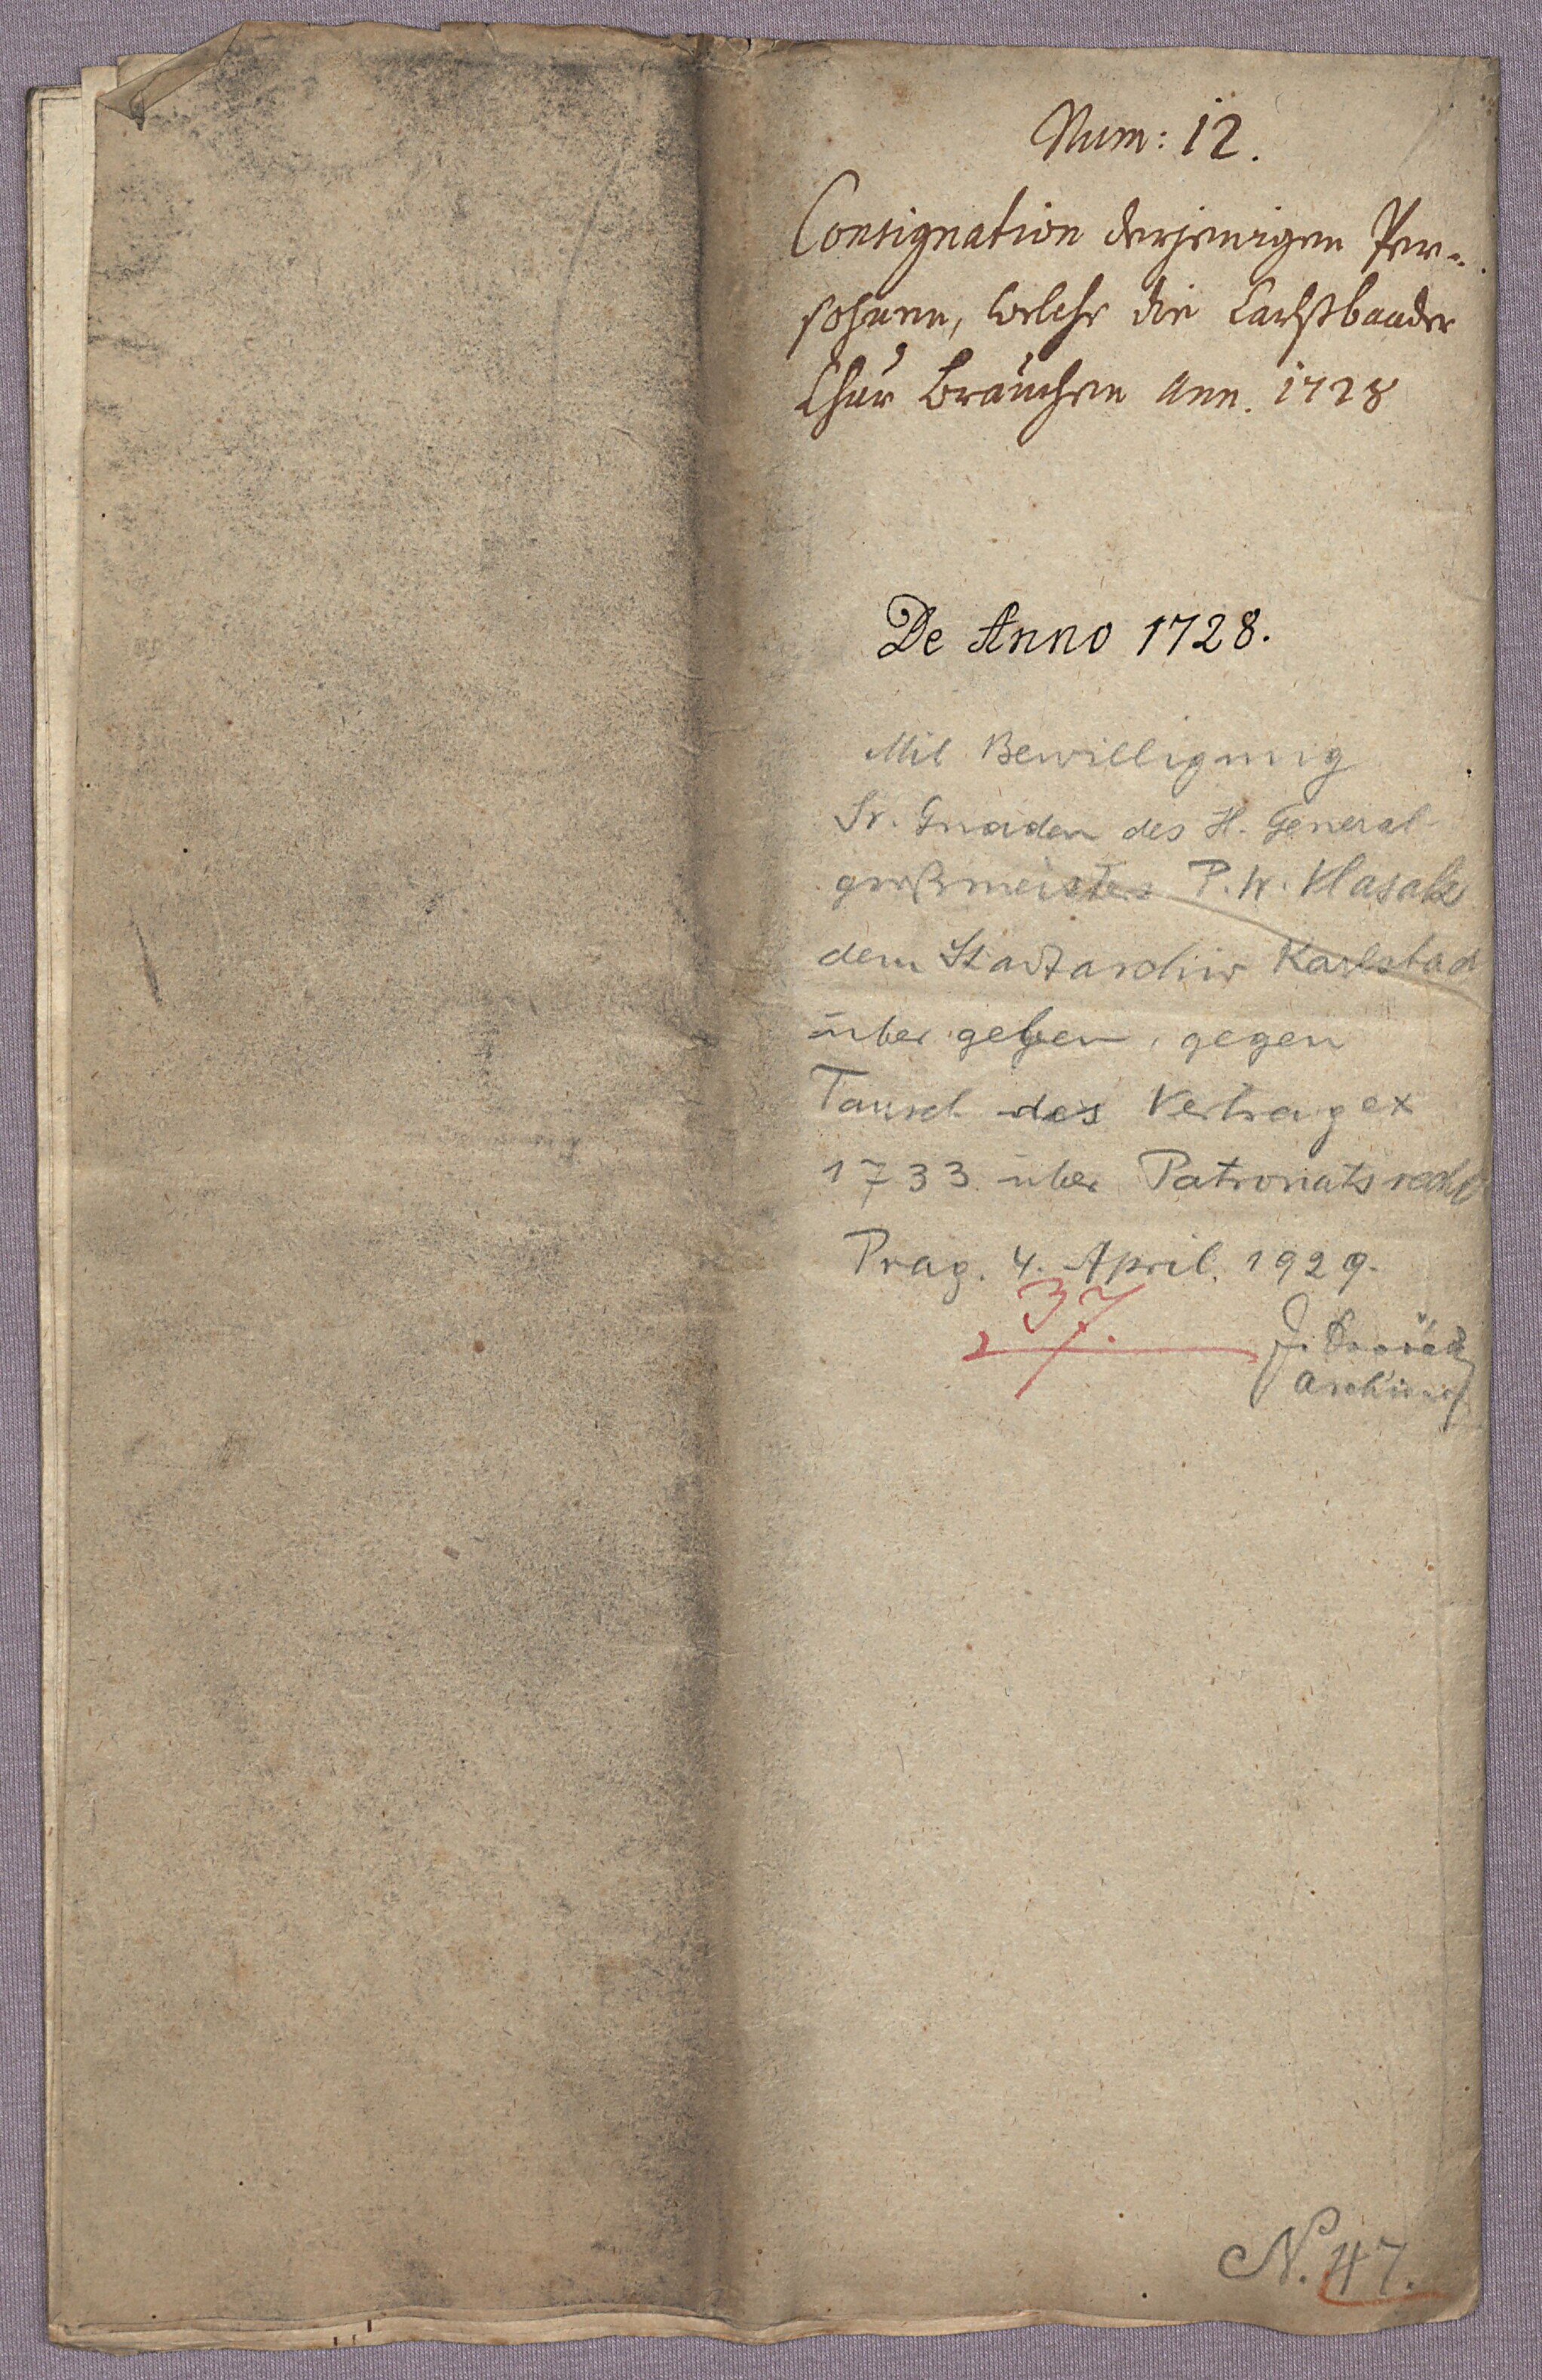 Num: 12.
Consignation derjenigen Per-
sohnen, welche die Carlsbaader
Chur brauchen Ann. 1728
De Anno 1728.
Mit Bewilligung
Sr. Gnaden des H. General-
großmeisters P. W. Vlasak
dem Stadtarchiv Karlsbad
übergeben, gegen
Tausch des Vertrag ex
1733 über Patronatsrecht
Prag. 4. April. 1929.
37.
J.
Archivar
N. 47.